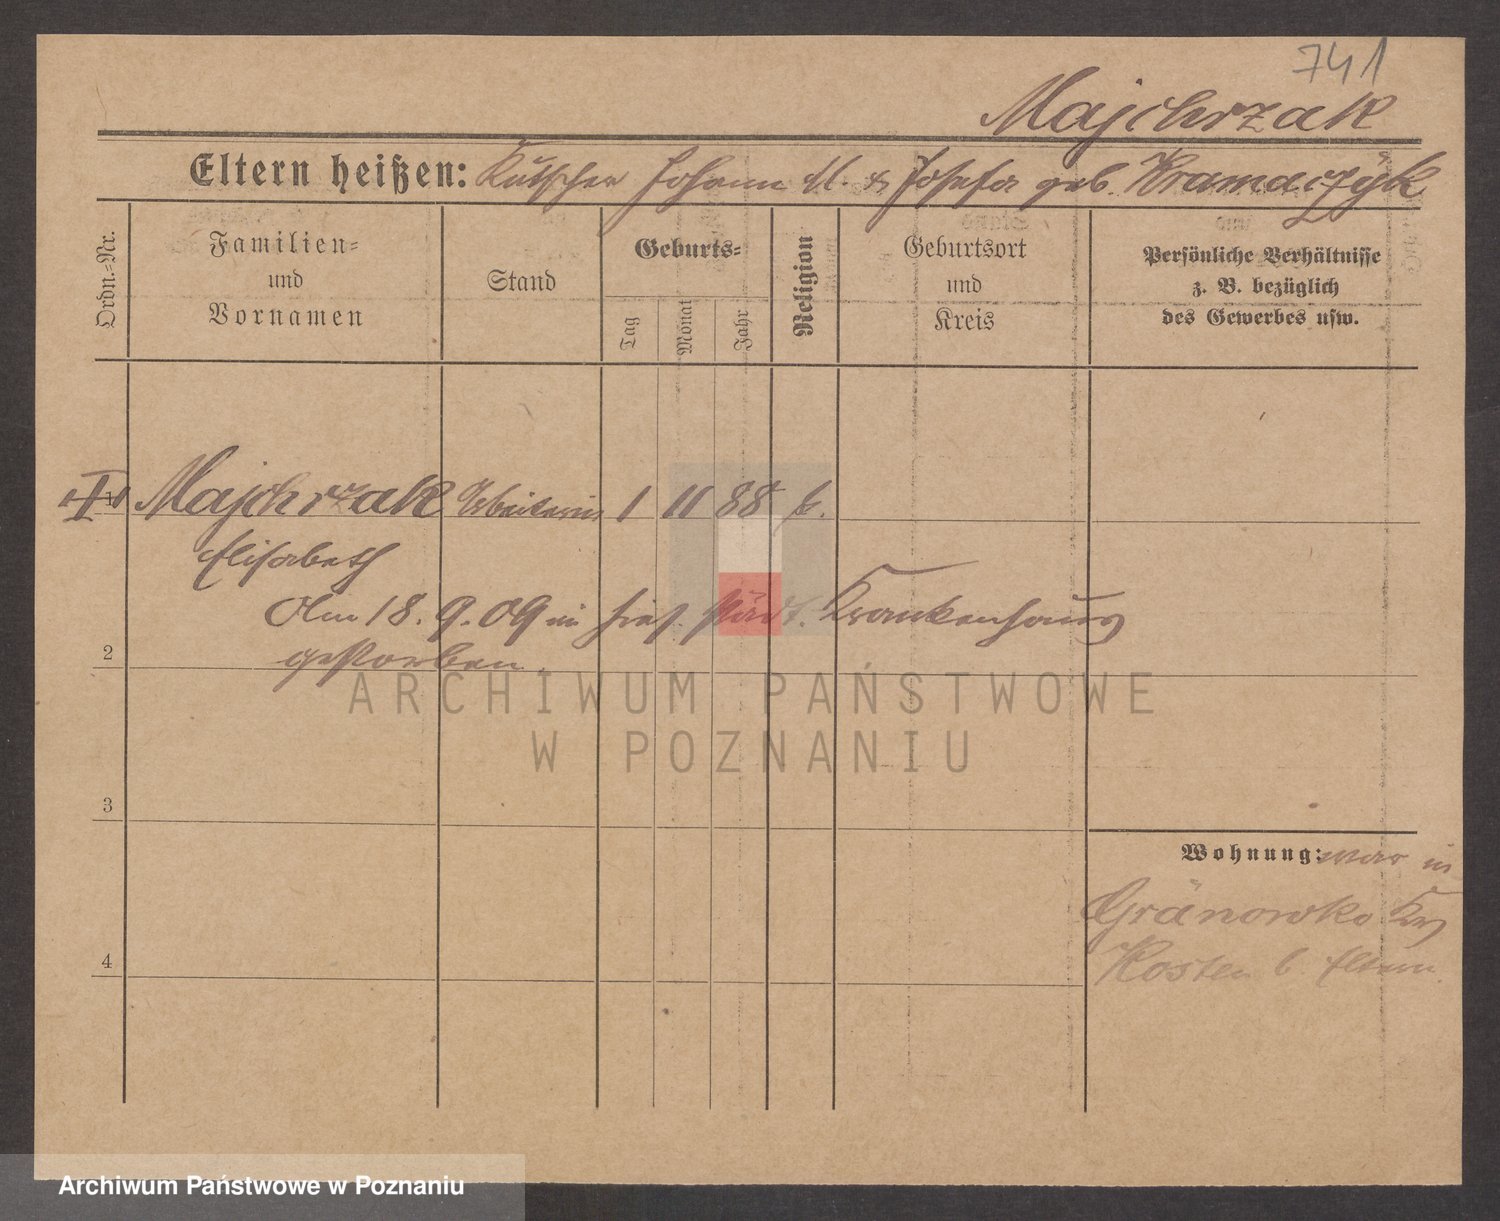 741
Majchrzak
Eltern heißen: Kutscher Johann M. & Josefa geb. Kramaczÿk
Ordn.-Nr.
Familien- und Vornamen
Stand
Geburts-
Tag
Monat
Jahr
Religion
Geburtsort und Kreis
Persönliche Verhältnisse
z. B. bezüglich
des Gewerbes usw.
I 1 Majchrzak Arbeiterin 1 11 88 k.
Elisabeth
Am 18. 9. 09 im hies. städt. Krankenhaus
2
gestorben.
ARCHIWUM PAŃSTWOWE
W POZNANIU
3
Wohnung: war in
Gränowko Krs
4
Kosten b. Eltern.
Archiwum Państwowe w Poznaniu